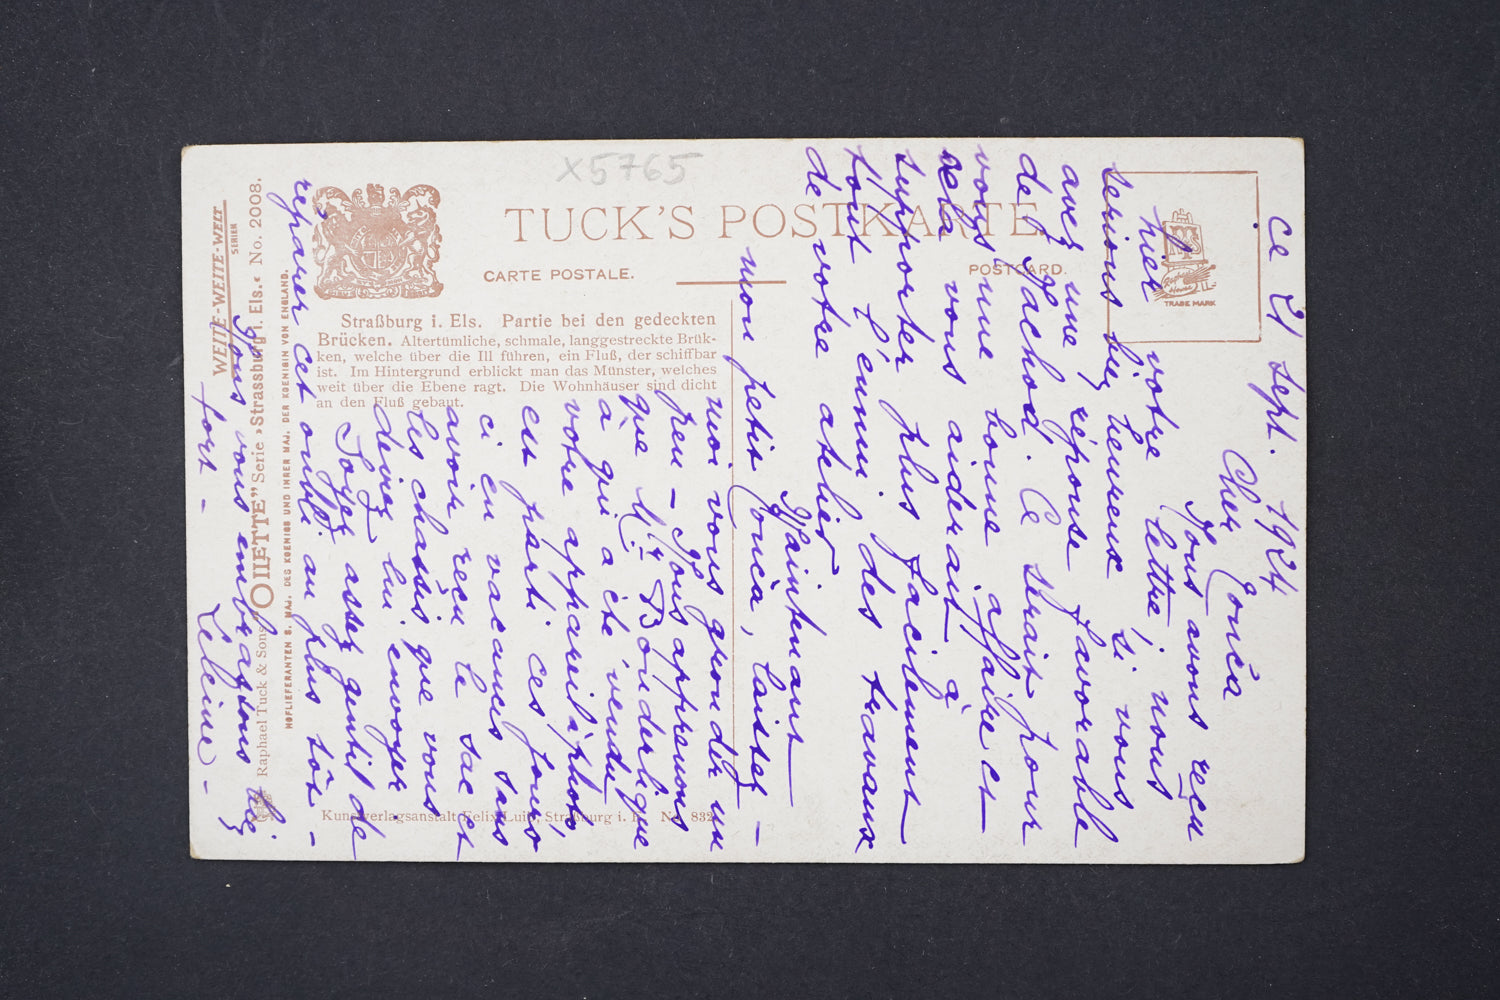 X5765
TUCK'S POSTKARTE
CARTE POSTALE.
POSTCARD.
TRADE MARK
Straßburg i. Els. Partie bei den gedeckten
Brücken. Altertümliche, schmale, langgestreckte Brük-
ken, welche über die Ill führen, ein Fluß, der schiffbar
ist. Im Hintergrund erblickt man das Münster, welches
weit über die Ebene ragt. Die Wohnhäuser sind dicht
an den Fluß gebaut.
WEITE-WEITE-WELT
SERIEN
Raphael Tuck & Sons „OILETTE" Serie »Strassburg i. Els.« No. 2008.
HOFLIEFERANTEN S. MAJ. DES KOENIGS UND IHRER MAJ. DER KOENIGIN VON ENGLAND.
Kunstverlagsanstalt Felix Luib, Straßburg i. E. No. 832
ce 21 sept. 1924
Cher Conča
Nous avons reçu
hier votre lettre; nous
serions bien heureux si vous
avez une réponse favorable
de Nachod. Ce serait pour
vous une bonne affaire et
cela vous aiderait à
supporter plus facilement
tout l'ennui des travaux
de votre atelier
Maintenant
mon petit Conča, laissez-
moi vous gronder un
peu - Nous apprenons
que Mr Bonderlique
à qui a été vendu
votre appareil à photo
est parti ces jours
ci en vacances sans
avoir reçu le sac et
les chassis que vous
devirez lui envoyer
Soyez assez gentil de
réparer cet oubli au plus tôt -
Nous vous embrassons bien
fort - Leleine -